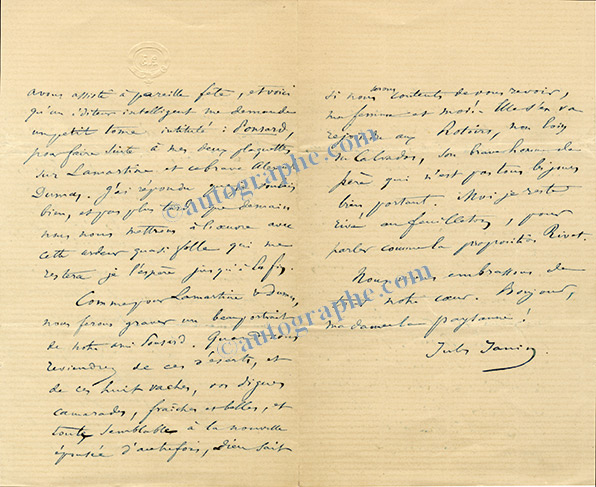 avons assisté à pareille fête, et voici
qu'un éditeur intelligent me demande
un petit tome intitulé : Ponsard,
pour faire suite à mes deux plaquettes
sur Lamartine et ce brave Alexandre
Dumas. J'ai répondu
bien, et pas plus tard que demain
nous nous mettrons à l'œuvre avec
cette ardeur quasi folle qui me
restera je l'espère jusqu'à la fin.
Comme pour Lamartine & Dumas,
nous ferons graver un beau portrait
de notre ami Ponsard. Quand vous
reviendrez de ces déserts, et
de ces huit vaches, vos dignes
camarades, fraîches et belles, et
toute semblable à la nouvelle
épousée d'autrefois, Dieu sait
si nous serons contents de vous revoir,
ma femme et moi! Elle s'en va
rejoindre aux non loin
du Calvados, son brave homme de
père qui n'est pas tous les jours
bien portant. Moi je reste
rivé au feuilleton, pour
parler comme la proposition Rivet.
Nous vous embrassons de
tout notre cœur. Bonjour,
madame la paysanne!
Jules Janin
©autographe.com
©autographe.com
©autographe.com